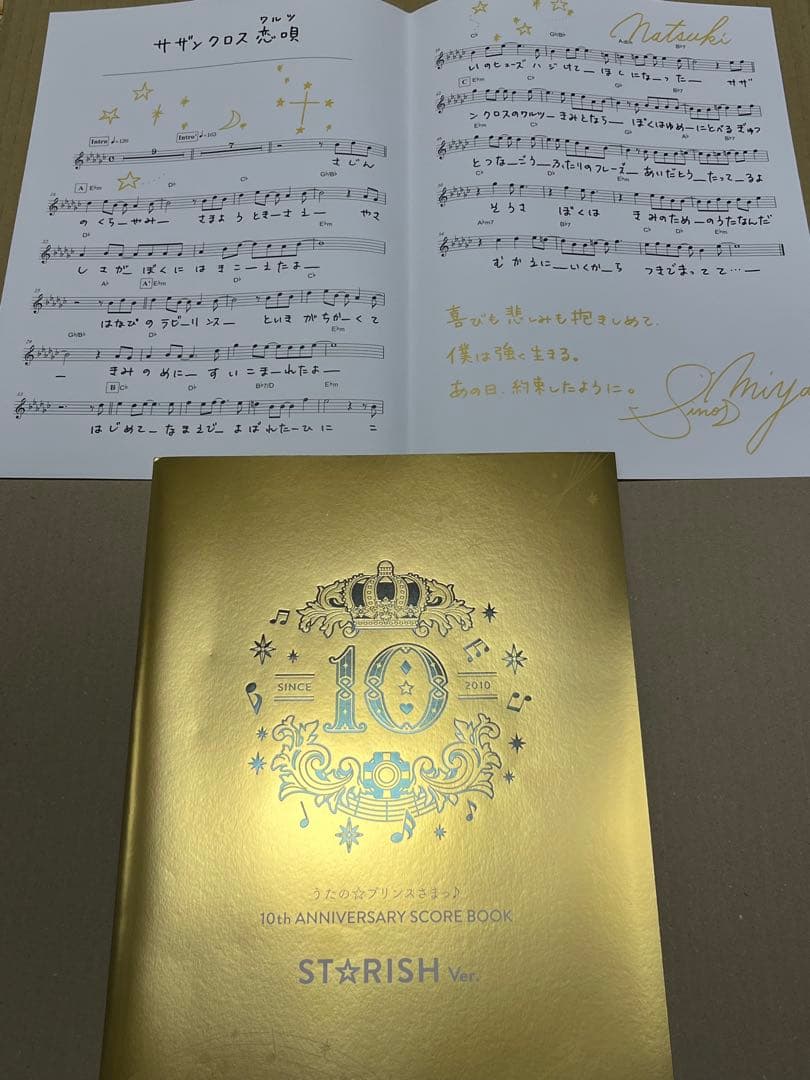 ワルツ
サザンクロス恋唄
Intro ♩=120
Intro' ♩=163
9
7
G♭/B♭
さじん
A E♭m D♭ C♭ G♭/B♭
のくらーやみー さまようときーさえー やさ
D♭ E♭m
しさが ぼくには きこーえたよー
A♭ A' E♭m D♭ C♭
はなびのラビーリンスー といきがちかーくて
G♭/B♭ D♭ E♭m
ー きみのめにー すいこまーれたよー
B C♭ D♭ B♭7/D E♭m
はじめてーなまえびーよばれたーひに こ
Natsuki
C♭ G♭/B♭ B♭7
いのヒューズハジけてー ほしになーったー サザ
C E♭m C♭ D♭ B♭7
ンクロスのワルツー きみとならー ぼくはゆめーにとべるぎゅっ
E♭m C♭ G♭ A♭ B♭7
とつなーごうー ふたりのフレーズー あいだとうーたってーるよ
E♭m C♭ D♭ E♭m
そらさ ぼくは きみのためーのうたなんだ
A♭m7 B♭7 C♭ D♭ E♭m
むかえにーいくかーら つきでまってて…ー
喜びも悲しみも抱きしめて、
僕は強く生きる。
あの日、約束したように。
SINCE 10 2010
うたの☆プリンスさまっ♪
10th ANNIVERSARY SCORE BOOK
ST☆RISH Ver.